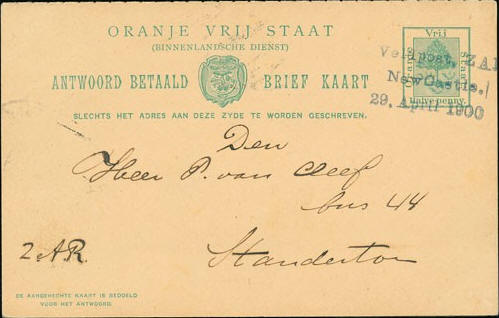 ORANJE VRIJ STAAT
(BINNENLANDSCHE DIENST)
ANTWOORD BETAALD BRIEF KAART
SLECHTS HET ADRES AAN DEZE ZYDE TE WORDEN GESCHREVEN.
Vrij
Oranje
Staat
Halve penny.
Veldpost, ZAR
NewCastle.
29. April 1900
Den
Heer P. van Cleef
bus 44
Standerton
2 A.R.
DE AANGEHECHTE KAART IS BEDOELD
VOOR HET ANTWOORD.